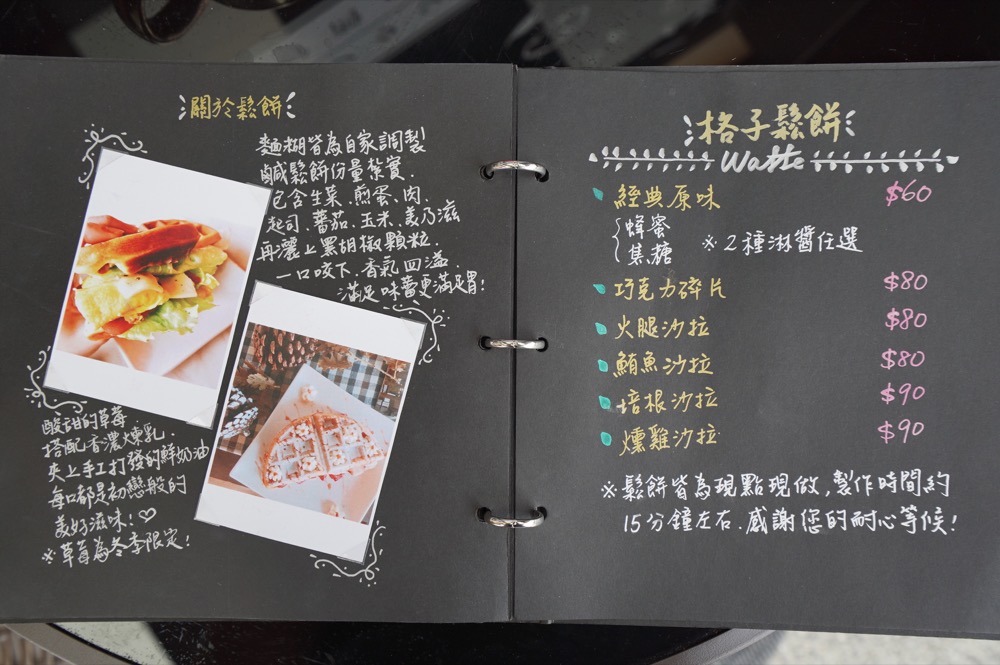 關於鬆餅
麵糊皆為自家調製!
鹹鬆餅份量紮實.
包含生菜.煎蛋.肉.
起司.蕃茄.玉米.美乃滋
再灑上黑胡椒顆粒.
一口咬下.香氣四溢
滿足味蕾更滿足胃!
酸甜的草莓
搭配香濃煉乳.
夾上手工打發的鮮奶油
每口都是初戀般的
美好滋味!♡
※草莓為冬季限定!
格子鬆餅
Waffle
經典原味 $60
蜂蜜
焦糖 ※2種淋醬任選
巧克力碎片 $80
火腿沙拉 $80
鮪魚沙拉 $80
培根沙拉 $90
燻雞沙拉 $90
※鬆餅皆為現點現做,製作時間約
15分鐘左右.感謝您的耐心等候!